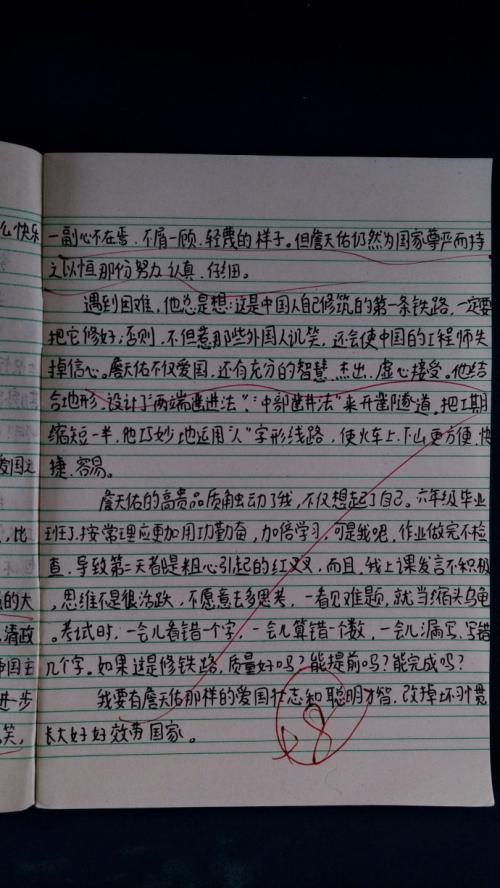 么快乐
一副心不在焉、不屑一顾、轻蔑的样子。但詹天佑仍然为国家尊严而持
之以恒那份努力、认真、仔细。
遇到困难，他总是想：这是中国人自己修筑的第一条铁路，一定要
把它修好；否则，不但惹那些外国人讥笑，还会使中国的工程师失
掉信心。詹天佑不仅爱国，还有充分的智慧、杰出、虚心接受。他结
合地形，设计了“两端凿进法”、“中部凿井法”来开凿隧道，把工期
缩短一半，他巧妙地运用“人”字形线路，使火车上、下山更方便、快
爱国之
捷、容易。
詹天佑的高贵品质触动了我，不仅想起了自己。六年级毕业
，比
班了，按常理应更加用功勤奋，加倍学习，可是我呢，作业做完不检
查，导致第二天都是粗心引起的红叉叉，而且，我上课发言不积极
的大
，思维不是很活跃，不愿意去多思考，一看见难题，就当缩头乌龟
清政
。考试时，一会儿看错一个字，一会儿算错一个数，一会儿漏写、写错
国主
几个字。如果这是修铁路，质量好吗？能提前吗？能完成吗？
进步
我要有詹天佑那样的爱国壮志和聪明才智，改掉坏习惯，
笑，
长大好好效劳国家。